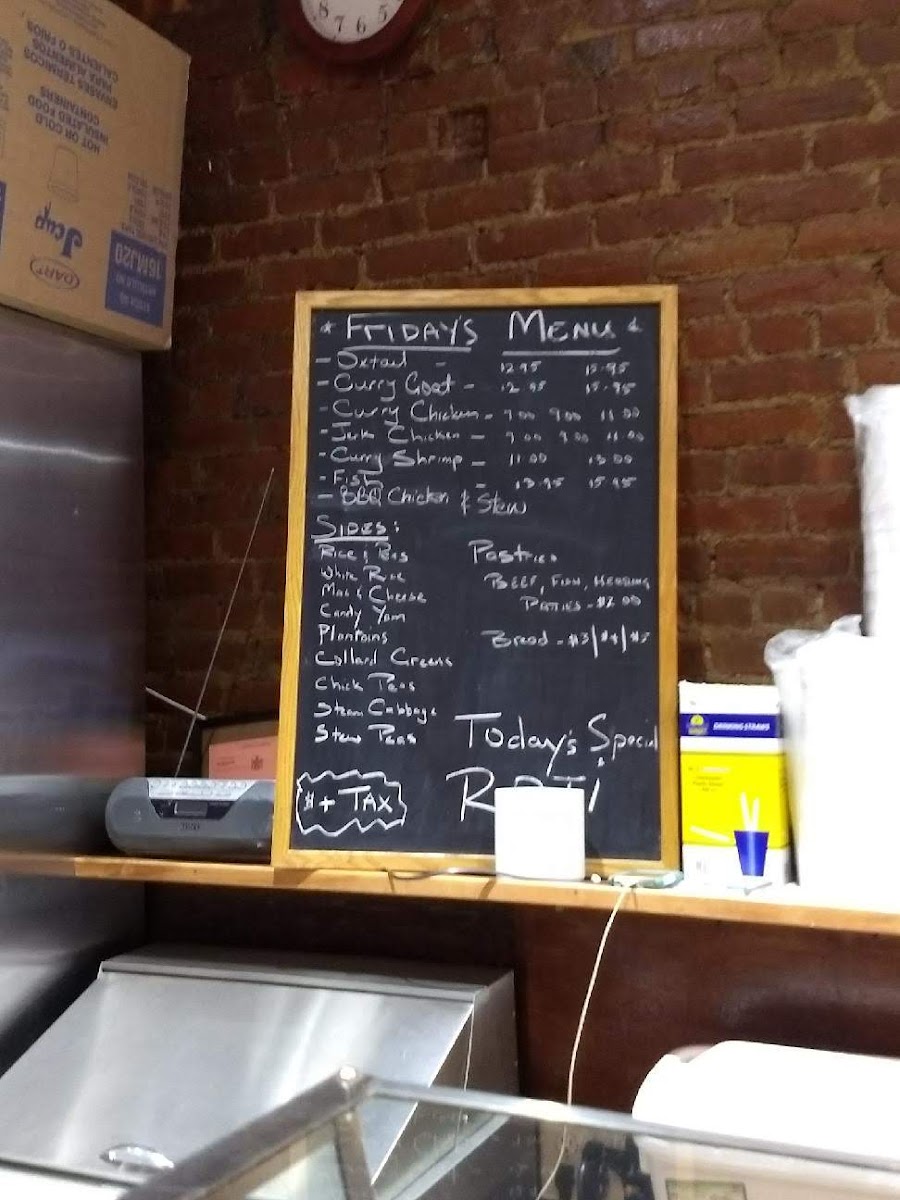 8 7 6 5
ENVASES TERMICOS
PARA ALIMENTOS
CALIENTES O FRIOS
HOT OR COLD
INSULATED FOOD
CONTAINERS
J cup
DART
16MJ20
* FRIDAY'S MENU *
- Oxtail - 12.95 15.95
- Curry Goat - 12.95 15.95
- Curry Chicken - 7.00 9.00 11.00
- Jerk Chicken - 7.00 9.00 11.00
- Curry Shrimp - 11.00 13.00
- Fish - 13.95 15.95
- BBQ Chicken & Stew
SIDES:
Rice & Peas
White Rice
Mac & Cheese
Candy Yam
Plantains
Collard Greens
Chick Peas
Steam Cabbage
Stew Peas
$ + TAX
Pastries
BEEF, FISH,
PATTIES - $2.00
Bread - $3/$4/$5
Today's Special
ROTI
DRINKING STRAWS